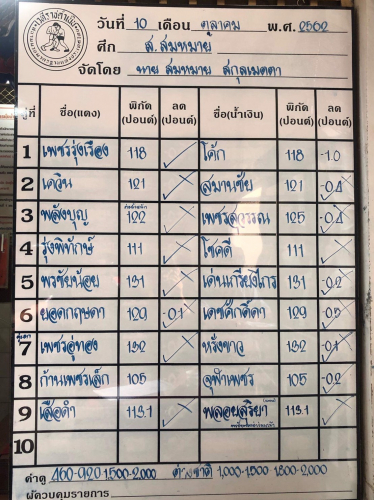 วันที่ 10 เดือน ตุลาคม พ.ศ. 2562
ศึก ส.สมหมาย
จัดโดย นาย สมหมาย สกุลเมตตา
คู่ที่ ชื่อ(แดง) พิกัด (ปอนด์) ลด (ปอนด์) ชื่อ(น้ำเงิน) พิกัด (ปอนด์) ลด (ปอนด์)
1 เพชรรุ่งเรือง 118 โค้ก 118 -1.0
2 เควิน 121 สมานชัย 121 -0.4
3 พลังบุญ 122 เพชรสุวรรณ 125 -0.4
4 รุ่งพิทักษ์ 111 โชคดี 111
5 พรชัยน้อย 131 เด่นเกรียงไกร 131 -0.2
6 ยอดกฤษดา 129 -0.1 เดชศักดิ์ดา 129 -0.5
คู่เอก
7 เพชรอู่ทอง 132 หรั่งขาว 132 -0.1
8 ก้านเพชรเล็ก 105 จุฬาเพชร 105 -0.2
9 เสือดำ 113.1 พลอยสุริยา 113.1
10
ค่าดู 460-920 1,500-2,000 ต่างชาติ 1,000-1,500 1,800-2,000
ผู้ควบคุมรายการ